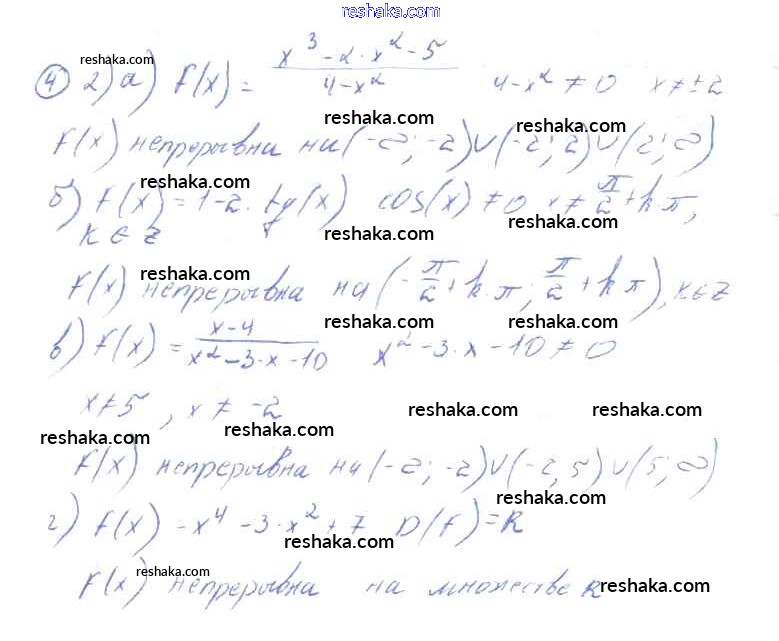 reshaka.com
④ 2) а) f(x) = (x³ - 2·x² - 5)/(4 - x²) 4 - x² ≠ 0 x ≠ ±2
reshaka.com
reshaka.com reshaka.com
f(x) непрерывна на (-∞; -2)∪(-2; 2)∪(2; ∞)
reshaka.com
б) f(x) = 1 - 2·tg(x) cos(x) ≠ 0 x ≠ π/2 + k·π,
reshaka.com
k ∈ Z
reshaka.com
reshaka.com
f(x) непрерывна на (-π/2 + k·π; π/2 + k·π), k ∈ Z
reshaka.com reshaka.com
в) f(x) = (x - 4)/(x² - 3·x - 10) x² - 3·x - 10 ≠ 0
x ≠ 5, x ≠ -2
reshaka.com reshaka.com
reshaka.com reshaka.com
f(x) непрерывна на (-∞; -2)∪(-2, 5)∪(5; ∞)
reshaka.com
г) f(x) = x⁴ - 3·x² + 7 D(f) = R
reshaka.com
reshaka.com
f(x) непрерывна на множестве R
reshaka.com